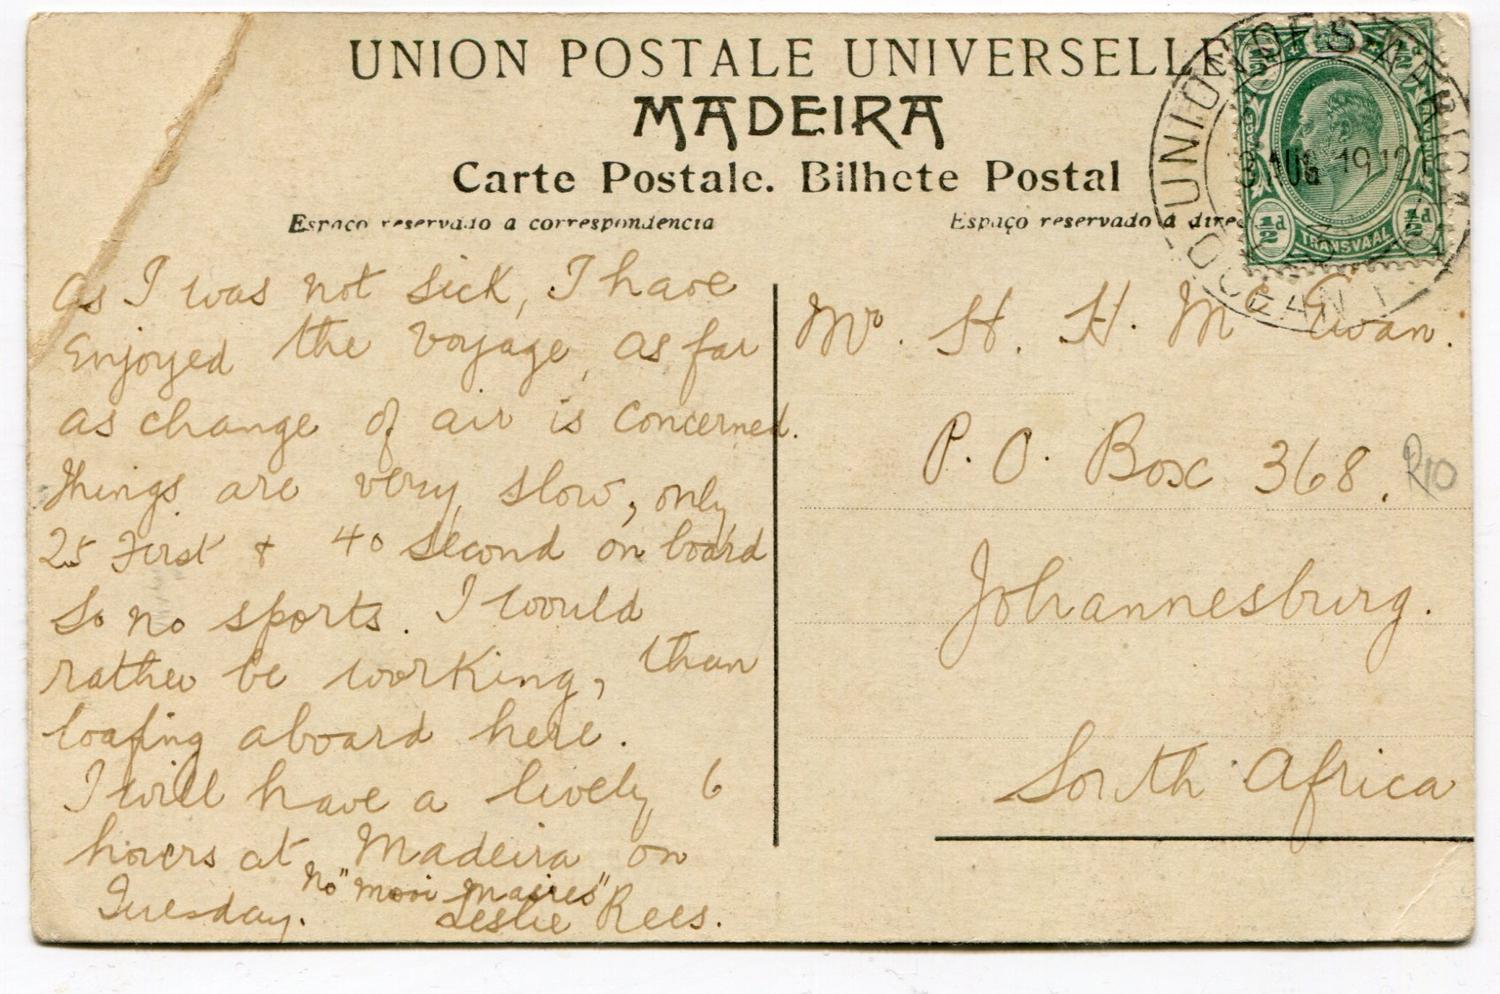 UNION POSTALE UNIVERSELLE
MADEIRA
Carte Postale. Bilhete Postal
Espaço reservado a correspondencia
Espaço reservado á direc
UNION OF S. AFRICA
AUG 1912
OCEAN
½d ½d
TRANSVAAL
As I was not sick, I have
Enjoyed the voyage, as far
as change of air is concerned.
Things are very slow, only
25 First & 40 Second on board
So no sports. I would
rather be working, than
loafing aboard here.
I will have a lively 6
hours at Madeira on
Tuesday. No
Leslie Rees.
Mr. H. H. Mc Ewan.
P.O. Box 368.
R10
Johannesburg.
South Africa